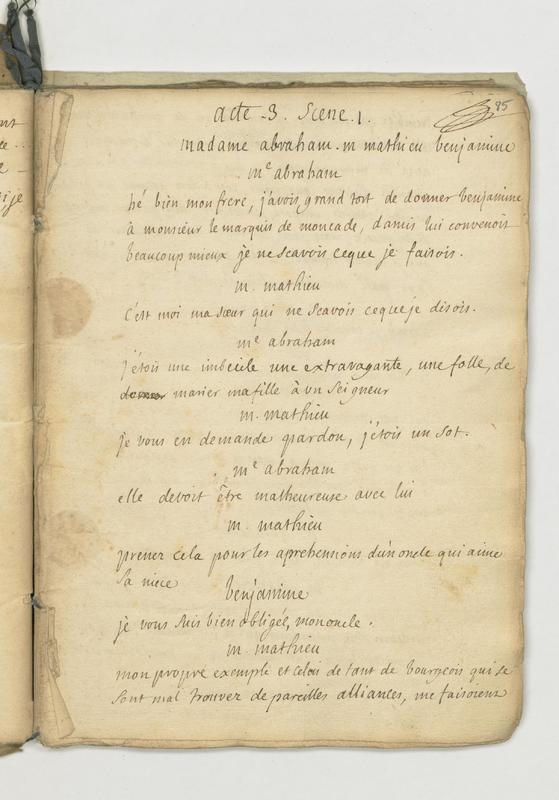 acte .3. Scene.1.
85
madame abraham. m mathieu benjamine
me abraham
hé bien mon frere, j'avois grand tort de donner benjamine
à monsieur le marquis de moncade, damis lui convenoit
beaucoup mieux je ne scavois ceque je faisois.
m. mathieu
C'est moi ma sœur qui ne scavois ceque je disois.
me abraham
j'étois une imbecile une extravagante, une folle, de
marier ma fille à un seigneur
m. mathieu
je vous en demande pardon, j'étois un sot.
me abraham
elle devoit être malheureuse avec lui
m. mathieu
prenez cela pour les aprehensions d'un oncle qui aime
sa niece
benjamine
je vous suis bien obligée, mon oncle.
m. mathieu
mon propre exemple et celui de tant de bourgeois qui se
sont mal trouvez de pareilles alliances, me faisoient